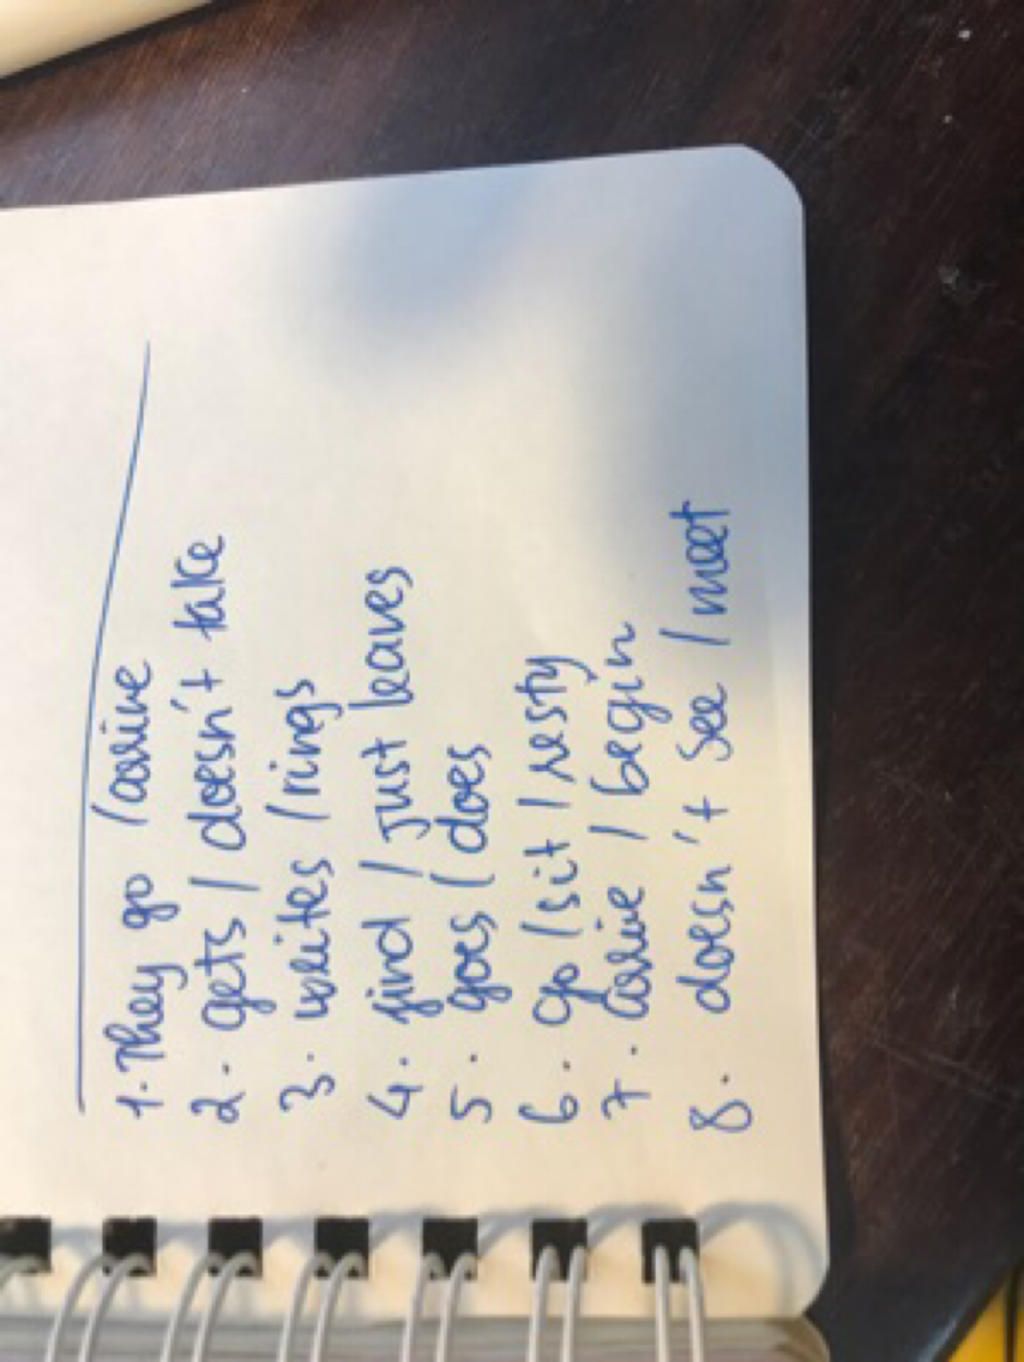 1. They go / arrive
2. gets / doesn't take
3. writes / rings
4. find / just leaves
5. goes / does
6. go / sit / resty
7. arrive / begin
8. doesn't see / meet